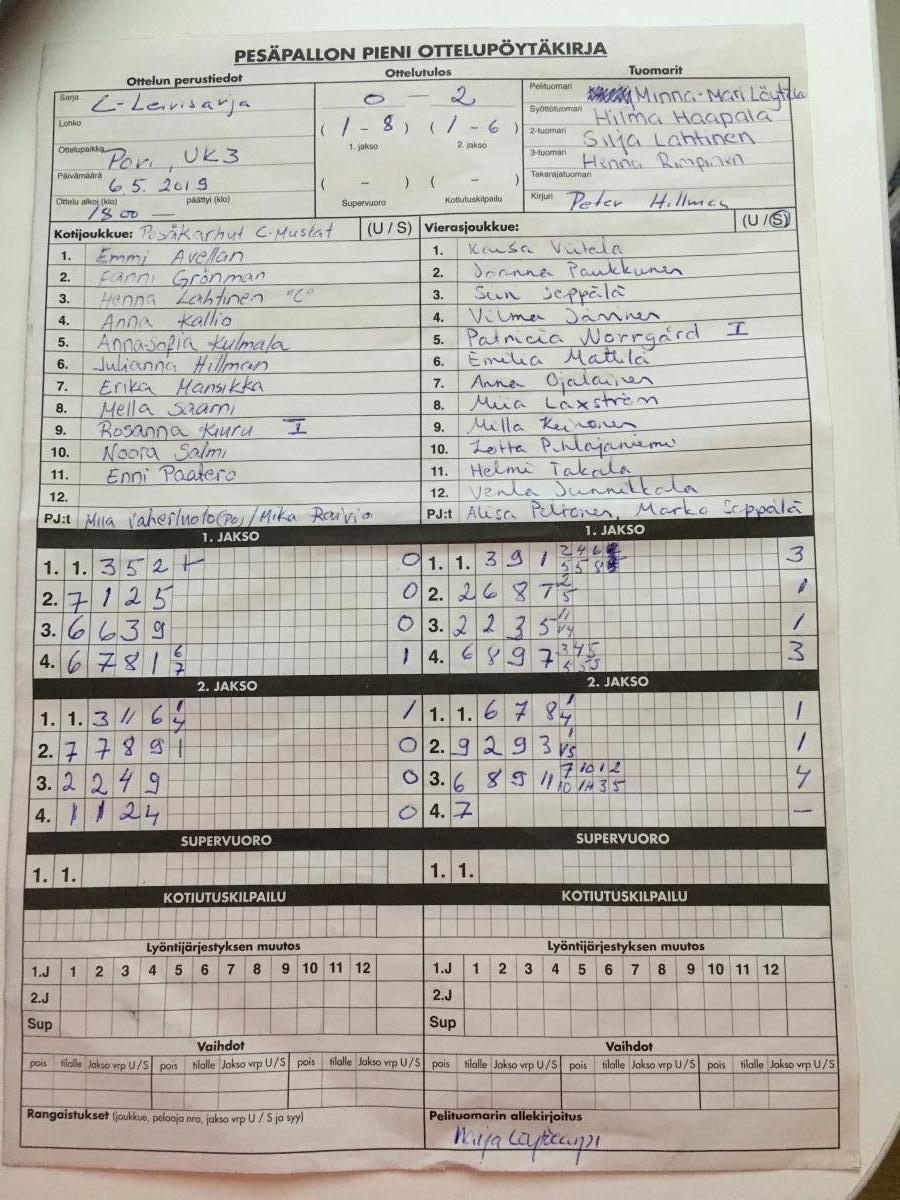 PESÄPALLON PIENI OTTELUPÖYTÄKIRJA
Ottelun perustiedot Ottelutulos Tuomarit
Sarja C-Leirisarja 0 — 2 Pelituomari Minna-Mari
Lohko (1 - 8) (1 - 6) Syöttötuomari Hilma Haapala
1. jakso 2. jakso 2-tuomari Silja Lahtinen
Ottelupaikka Pori, UK3 3-tuomari Henna Rimpinen
Päivämäärä 6.5. 2019 ( - ) ( - ) Takarajatuomari
Ottelu alkoi (klo) 18 00 — päättyi (klo) Supervuoro Kotiutuskilpailu Kirjuri Peter Hillman
Kotijoukkue: Pesäkarhut C-Mustat (U / S) Vierasjoukkue: (U / S)
1. Emmi Avellan 1. Viitala
2. Fanni Grönman 2. Joanna Paukkunen
3. Henna Lahtinen "C" 3. Seppälä
4. Anna Kallio 4. Vilma
5. AnnaSofia Kulmala 5. Patricia Norrgård I
6. Julianna Hillman 6. Emilia Mattila
7. Erika Mansikka 7. Anna Ojalainen
8. Mella Saarni 8. Miia Laxström
9. Rosanna Kiuru I 9. Milla Keinonen
10. Noora Salmi 10. Lotta Pihlajaniemi
11. Enni Paatero 11. Helmi Takala
12. 12. Venla Junnikkala
PJ:t Miia Vaherluoto(PO) / Mika Raivio PJ:t Alisa Peltonen, Marko Seppälä
1. JAKSO 1. JAKSO
1. 1. 3 5 2 0 1. 1. 3 9 1 2 4 6 3
5 5 8
2. 7 1 2 5 0 2. 2 6 8 7 2 1
5
3. 6 6 3 9 0 3. 2 2 3 5 11 1
4. 6 7 8 1 6 1 4. 6 8 9 7 3 4 5 3
7 4 5 5
2. JAKSO 2. JAKSO
1. 1. 3 11 6 1 1 1. 1. 6 7 8 1 1
4 4
2. 7 7 8 9 1 0 2. 9 2 9 3 1 1
3. 2 2 4 9 0 3. 6 8 9 11 7 10 1 2 4
10 11 3 5
4. 1 1 2 4 0 4. 7 —
SUPERVUORO SUPERVUORO
1. 1. 1. 1.
KOTIUTUSKILPAILU KOTIUTUSKILPAILU
Lyöntijärjestyksen muutos Lyöntijärjestyksen muutos
1.J 1 2 3 4 5 6 7 8 9 10 11 12 1.J 1 2 3 4 5 6 7 8 9 10 11 12
2.J 2.J
Sup Sup
Vaihdot Vaihdot
pois tilalle Jakso vrp U/S pois tilalle Jakso vrp U/S pois tilalle Jakso vrp U/S pois tilalle Jakso vrp U/S pois tilalle Jakso vrp U/S pois tilalle Jakso vrp U/S
Rangaistukset (joukkue, pelaaja nro, jakso vrp U / S ja syy) Pelituomarin allekirjoitus